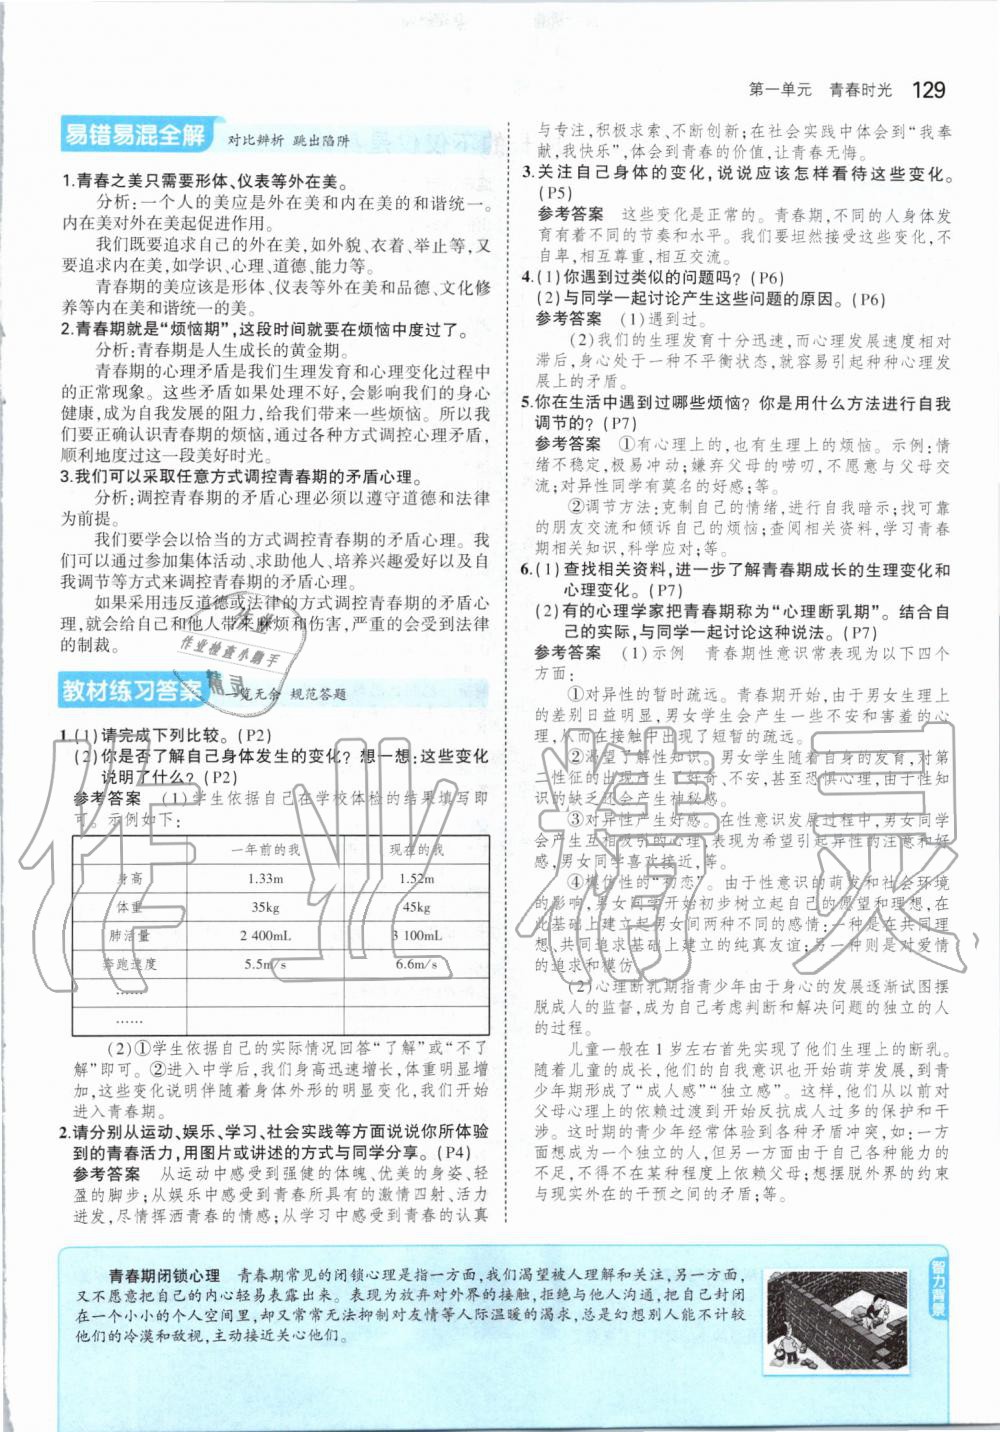 第一单元　青春时光　129
易错易混全解　对比辨析　跳出陷阱
1.青春之美只需要形体、仪表等外在美。
分析:一个人的美应是外在美和内在美的和谐统一。
内在美对外在美起促进作用。
我们既要追求自己的外在美,如外貌、衣着、举止等,又
要追求内在美,如学识、心理、道德、能力等。
青春期的美应该是形体、仪表等外在美和品德、文化修
养等内在美和谐统一的美。
2.青春期就是“烦恼期”,这段时间就要在烦恼中度过了。
分析:青春期是人生成长的黄金期。
青春期的心理矛盾是我们生理发育和心理变化过程中
的正常现象。这些矛盾如果处理不好,会影响我们的身心
健康,成为自我发展的阻力,给我们带来一些烦恼。所以我
们要正确认识青春期的烦恼,通过各种方式调控心理矛盾,
顺利地度过这一段美好时光。
3.我们可以采取任意方式调控青春期的矛盾心理。
分析:调控青春期的矛盾心理必须以遵守道德和法律
为前提。
我们要学会以恰当的方式调控青春期的矛盾心理。我
们可以通过参加集体活动、求助他人、培养兴趣爱好以及自
我调节等方式来调控青春期的矛盾心理。
如果采用违反道德或法律的方式调控青春期的矛盾心
理,就会给自己和他人带来麻烦和伤害,严重的会受到法律
的制裁。
作业
作业检查小助手
精灵
教材练习答案　一览无余　规范答题
1.(1)请完成下列比较。(P2)
(2)你是否了解自己身体发生的变化？想一想:这些变化
说明了什么？(P2)
参考答案　(1)学生依据自己在学校体检的结果填写即
可。示例如下:
一年前的我　现在的我
身高　1.33m　1.52m
体重　35kg　45kg
肺活量　2 400mL　3 100mL
奔跑速度　5.5m/s　6.6m/s
……
……
(2)①学生依据自己的实际情况回答“了解”或“不了
解”即可。②进入中学后,我们身高迅速增长,体重明显增
加,这些变化说明伴随着身体外形的明显变化,我们开始
进入青春期。
2.请分别从运动、娱乐、学习、社会实践等方面说说你所体验
到的青春活力,用图片或讲述的方式与同学分享。(P4)
参考答案　从运动中感受到强健的体魄,优美的身姿、轻
盈的脚步;从娱乐中感受到青春所具有的激情四射、活力
迸发,尽情挥洒青春的情感;从学习中感受到青春的认真
与专注,积极求索、不断创新;在社会实践中体会到“我奉
献,我快乐”,体会到青春的价值,让青春无悔。
3.关注自己身体的变化,说说应该怎样看待这些变化。
(P5)
参考答案　这些变化是正常的。青春期,不同的人身体发
育有着不同的节奏和水平。我们要坦然接受这些变化,不
自卑,相互尊重,相互交流。
4.(1)你遇到过类似的问题吗？(P6)
(2)与同学一起讨论产生这些问题的原因。(P6)
参考答案　(1)遇到过。
(2)我们的生理发育十分迅速,而心理发展速度相对
滞后,身心处于一种不平衡状态,就容易引起种种心理发
展上的矛盾。
5.你在生活中遇到过哪些烦恼？你是用什么方法进行自我
调节的？(P7)
参考答案　①有心理上的,也有生理上的烦恼。示例;情
绪不稳定,极易冲动;嫌弃父母的唠叨,不愿意与父母交
流;对异性同学有莫名的好感;等。
②调节方法:克制自己的情绪,进行自我暗示;找可靠
的朋友交流和倾诉自己的烦恼;查阅相关资料,学习青春
期相关知识,科学应对;等。
6.(1)查找相关资料,进一步了解青春期成长的生理变化和
心理变化。(P7)
(2)有的心理学家把青春期称为“心理断乳期”。结合自
己的实际,与同学一起讨论这种说法。(P7)
参考答案　(1)示例　青春期性意识常表现为以下四个
方面:
①对异性的暂时疏远。青春期开始,由于男女生理上
的差别日益明显,男女学生会产生一些不安和害羞的心
理,从而在接触中出现了短暂的疏远。
②渴望了解性知识。男女学生随着自身的发育,对第
二性征的出现产生了好奇、不安,甚至恐惧心理,由于性知
识的缺乏还会产生神秘感。
③对异性产生好感。在性意识发展过程中,男女同学
会产生互相吸引的心理,表现为希望引起异性的注意和好
感,男女同学喜欢接近,等。
④模仿性的“初恋”。由于性意识的萌发和社会环境
的影响,男女同学开始初步树立自己的愿望和理想,在
此基础上建立起男女间两种不同的感情:一种是在共同理
想、共同追求基础上建立的纯真友谊;另一种则是对爱情
的追求和模仿。
(2)心理断乳期指青少年由于身心的发展逐渐试图摆
脱成人的监督,成为自己考虑判断和解决问题的独立的人
的过程。
儿童一般在1岁左右首先实现了他们生理上的断乳。
随着儿童的成长,他们的自我意识也开始萌芽发展,到青
少年期形成了“成人感”“独立感”。这样,他们从以前对
父母心理上的依赖过渡到开始反抗成人过多的保护和干
涉。这时期的青少年经常体验到各种矛盾冲突,如:一方
面想成为一个独立的人,但另一方面由于自己各种能力的
不足,不得不在某种程度上依赖父母;想摆脱外界的约束
与现实外在的干预之间的矛盾;等。
作业精灵
青春期闭锁心理　青春期常见的闭锁心理是指一方面,我们渴望被人理解和关注,另一方面,
又不愿意把自己的内心轻易表露出来。表现为放弃对外界的接触,拒绝与他人沟通,把自己封闭
在一个小小的个人空间里,却又常常无法抑制对友情等人际温暖的渴求,总是幻想别人能不计较
他们的冷漠和敌视,主动接近关心他们。
智力背景